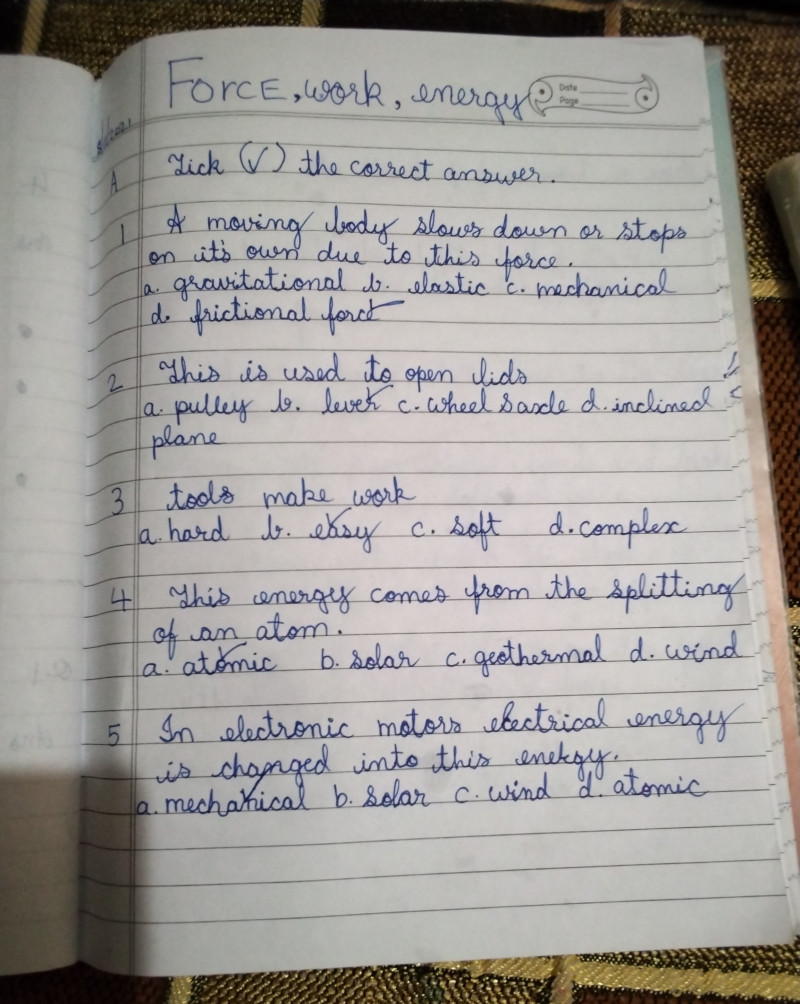 Force, work, energy
Date
Page
A Tick (✓) the correct answer.
1 A moving body slows down or stops
on it's own due to this force.
a. gravitational b. elastic c. mechanical
d. frictional force
2 This is used to open lids
a. pulley b. lever c. wheel & axle d. inclined
plane
3 tools make work
a. hard b. easy c. soft d. complex
4 This energy comes from the splitting
of an atom.
a. atomic b. solar c. geothermal d. wind
5 In electronic motors electrical energy
is changed into this energy.
a. mechanical b. solar c. wind d. atomic